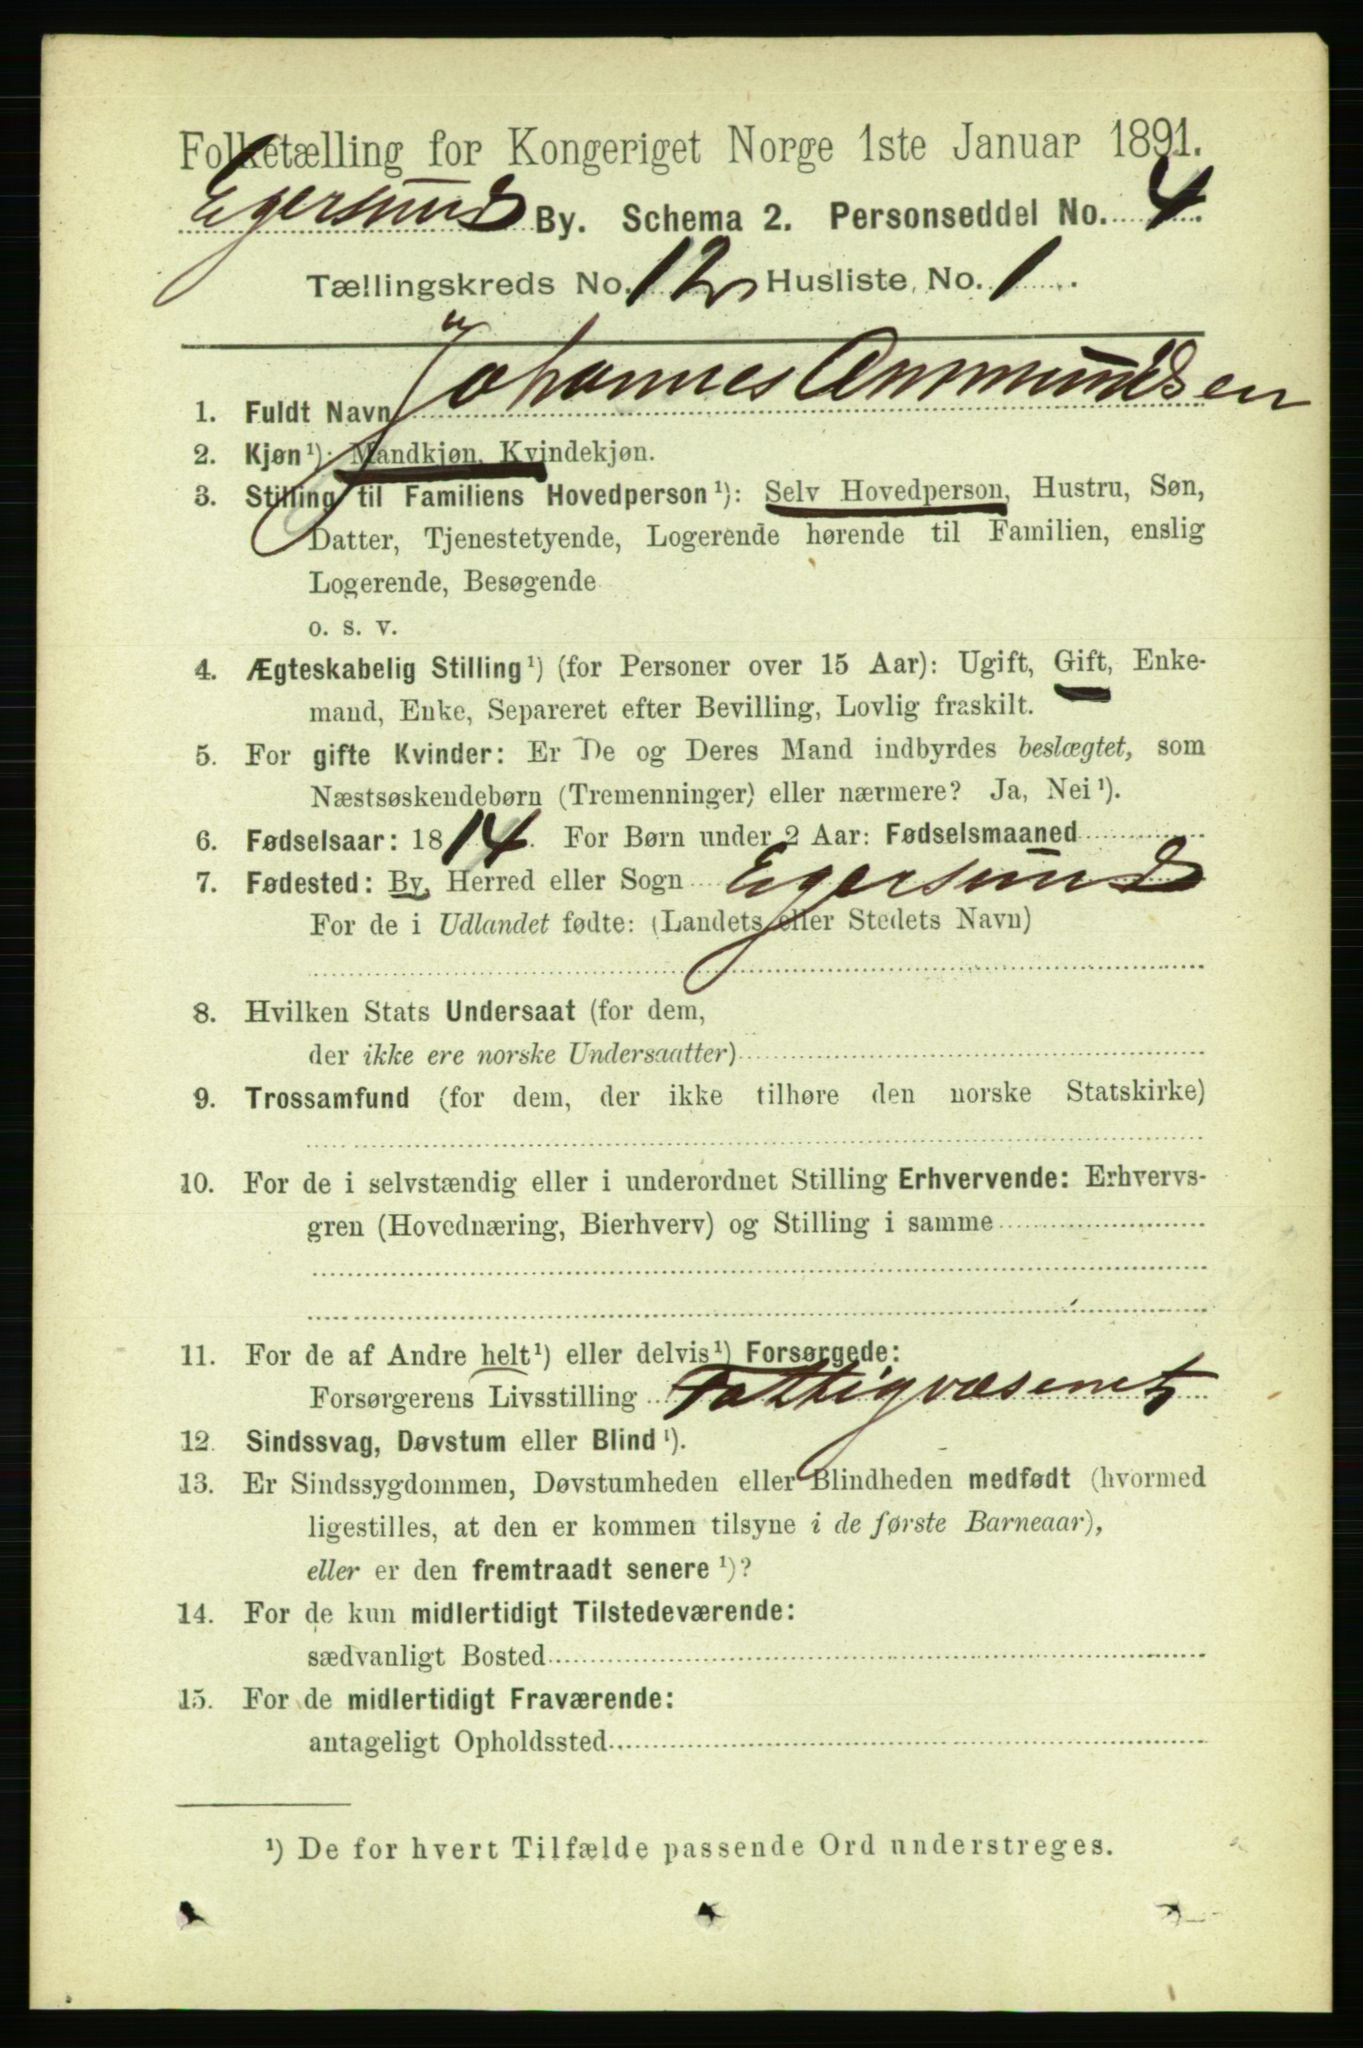 Folketælling for Kongeriget Norge 1ste Januar 1891.
Egersund By. Schema 2. Personseddel No. 4.
Tællingskreds No. 12 Husliste No. 1.
1. Fuldt Navn Johannes Ommundsen
2. Kjøn ¹): Mandkjøn, Kvindekjøn.
3. Stilling til Familiens Hovedperson ¹): Selv Hovedperson, Hustru, Søn,
Datter, Tjenestetyende, Logerende hørende til Familien, enslig
Logerende, Besøgende
o. s. v.
4. Ægteskabelig Stilling ¹) (for Personer over 15 Aar): Ugift, Gift, Enke-
mand, Enke, Separeret efter Bevilling, Lovlig fraskilt.
5. For gifte Kvinder: Er De og Deres Mand indbyrdes beslægtet, som
Næstsøskendebørn (Tremenninger) eller nærmere? Ja, Nei ¹).
6. Fødselsaar: 1814. For Børn under 2 Aar: Fødselsmaaned
7. Fødested: By, Herred eller Sogn Egersund
For de i Udlandet fødte: (Landets eller Stedets Navn)
8. Hvilken Stats Undersaat (for dem,
der ikke ere norske Undersaatter)
9. Trossamfund (for dem, der ikke tilhøre den norske Statskirke)
10. For de i selvstændig eller i underordnet Stilling Erhvervende: Erhvervs-
gren (Hovednæring, Bierhverv) og Stilling i samme
11. For de af Andre helt ¹) eller delvis ¹) Forsørgede:
Forsørgerens Livsstilling Fattigvæsenet
12. Sindssvag, Døvstum eller Blind ¹).
13. Er Sindssygdommen, Døvstumheden eller Blindheden medfødt (hvormed
ligestilles, at den er kommen tilsyne i de første Barneaar),
eller er den fremtraadt senere ¹)?
14. For de kun midlertidigt Tilstedeværende:
sædvanligt Bosted
15. For de midlertidigt Fraværende:
antageligt Opholdssted
¹) De for hvert Tilfælde passende Ord understreges.